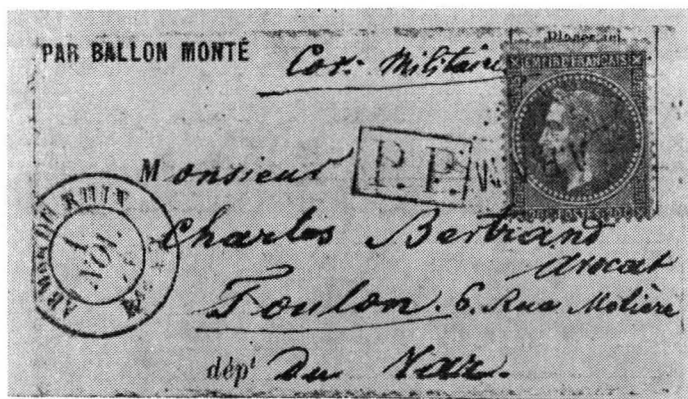 PAR BALLON MONTÉ
Cor: Militaire
Placer ici
EMPIRE FRANÇAIS
Monsieur
P. P.
ARMÉE DU RHIN
1
NOV.
Charles Bertrand
avocat
Toulon. 6. Rue Molière
dépt Du Var.